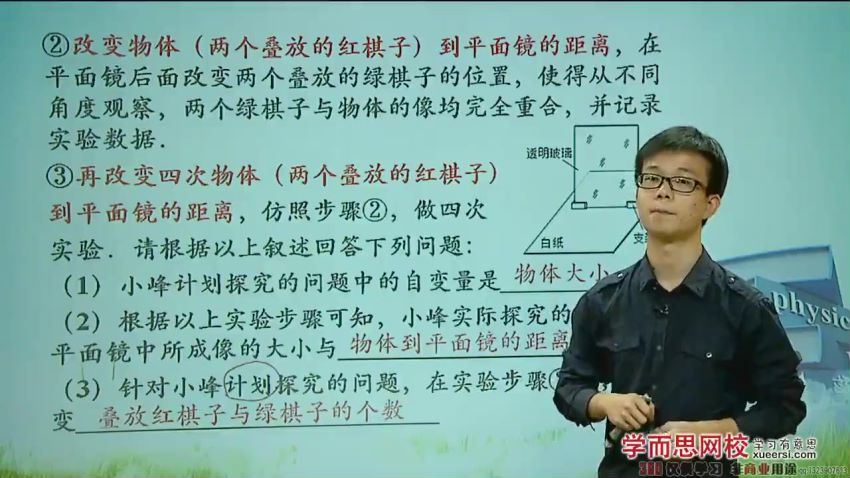 ②改变物体（两个叠放的红棋子）到平面镜的距离，在
平面镜后面改变两个叠放的绿棋子的位置，使得从不同
角度观察，两个绿棋子与物体的像均完全重合，并记录
实验数据．
③再改变四次物体（两个叠放的红棋子）
到平面镜的距离，仿照步骤②，做四次
实验．请根据以上叙述回答下列问题：
透明玻璃
白纸
支
（1）小峰计划探究的问题中的自变量是 物体大小
（2）根据以上实验步骤可知，小峰实际探究的
平面镜中所成像的大小与 物体到平面镜的距离
（3）针对小峰计划探究的问题，在实验步骤
变 叠放红棋子与绿棋子的个数
physic
学而思网校 学习有意思
xueersi.com
非商业用途